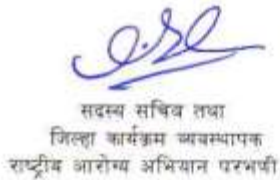 सदस्य सचिव तथा
जिल्हा कार्यक्रम व्यवस्थापक
राष्ट्रीय आरोग्य अभियान परभणी